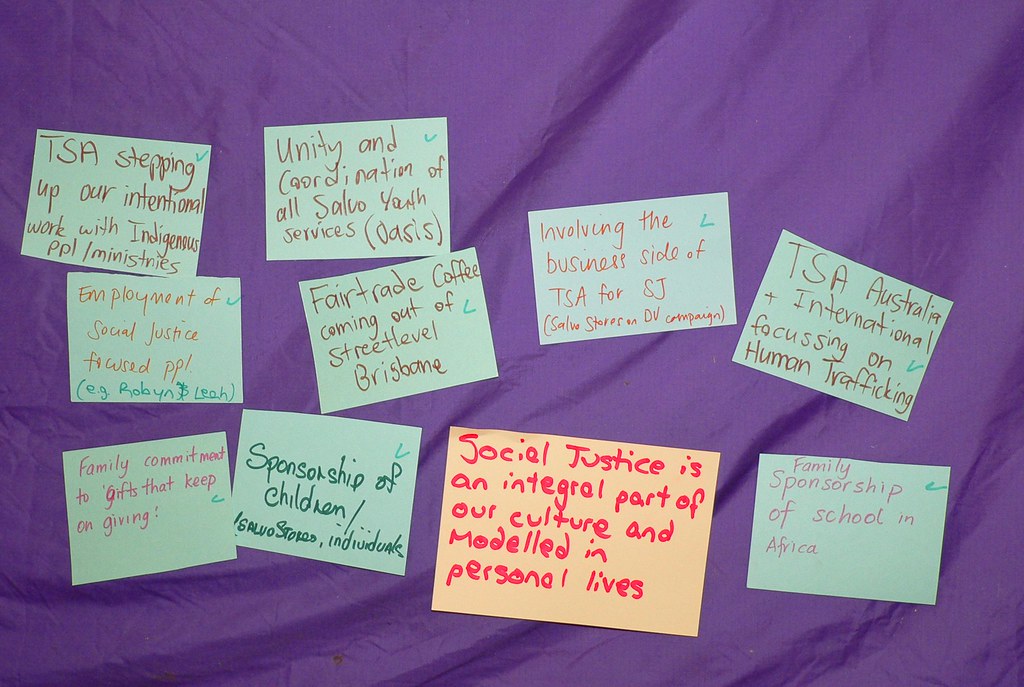 TSA stepping
up our intentional
work with Indigenous
ppl/ministries
Unity and
Coordination of
all Salvo Youth
services (Oasis)
Involving the
business side of
TSA for SJ
(Salvo Stores on DV campaign)
TSA Australia
+ International
focussing on
Human Trafficking
Employment of
social justice
focused ppl
(e.g. Robyn & Leah)
Fairtrade Coffee
coming out of
Streetlevel
Brisbane
Family commitment
to 'gifts that keep
on giving!
Sponsorship of
children/
/SALVO STORES, individuals
Social Justice is
an integral part of
our culture and
Modelled in
personal lives
Family
Sponsorship
of school in
Africa